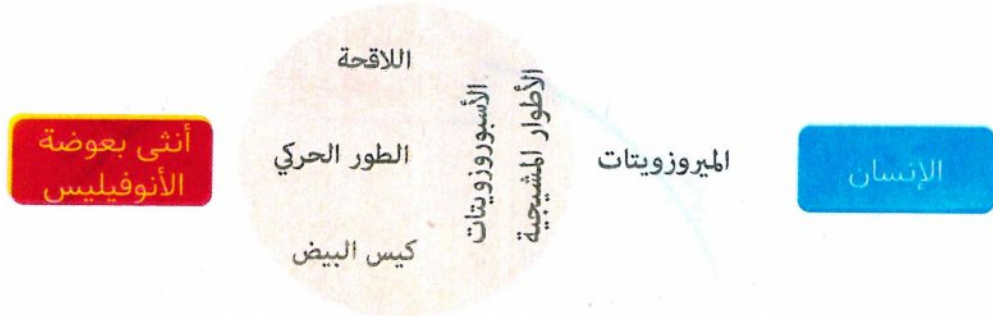 الإنسان
الميروزويتات
الأطوار المشيجية
الأسبوروزويتات
اللاقحة
الطور الحركي
كيس البيض
أنثى بعوضة
الأنوفيليس